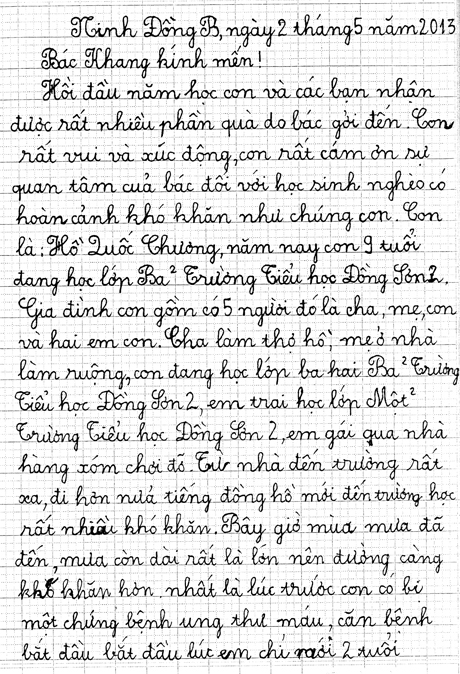 Ninh Đồng B, ngày 2 tháng 5 năm 2013
Bác Khang kính mến!
Hồi đầu năm học con và các bạn nhận
được rất nhiều phần quà do bác gởi đến. Con
rất vui và xúc động, con rất cám ơn sự
quan tâm cuả bác đối với học sinh nghèo có
hoàn cảnh khó khăn như chúng con. Con
là: Hồ Quốc Chương, năm nay con 9 tuổi
đang học lớp Ba² Trường Tiểu học Đồng Sơn 2.
Gia đình con gồm có 5 người đó là cha, mẹ, con
và hai em con. Cha làm thợ hồ, mẹ ở nhà
làm ruộng, con đang học lớp ba hai Ba² Trường
Tiểu học Đồng Sơn 2, em trai học lớp Một²
Trường Tiểu học Đồng Sơn 2, em gái qua nhà
hàng xóm chơi đỡ. Từ nhà đến trường rất
xa, đi hơn nưả tiếng đồng hồ mới đến trường học
rất nhiều khó khăn. Bây giờ mùa mưa đã
đến, mưa còn dài rất là lớn nên đường càng
khó khăn hơn nhất là lúc trước con có bị
một chứng bệnh ung thư máu, căn bệnh
bắt đầu bắt đầu lúc em chỉ mới 2 tuổi